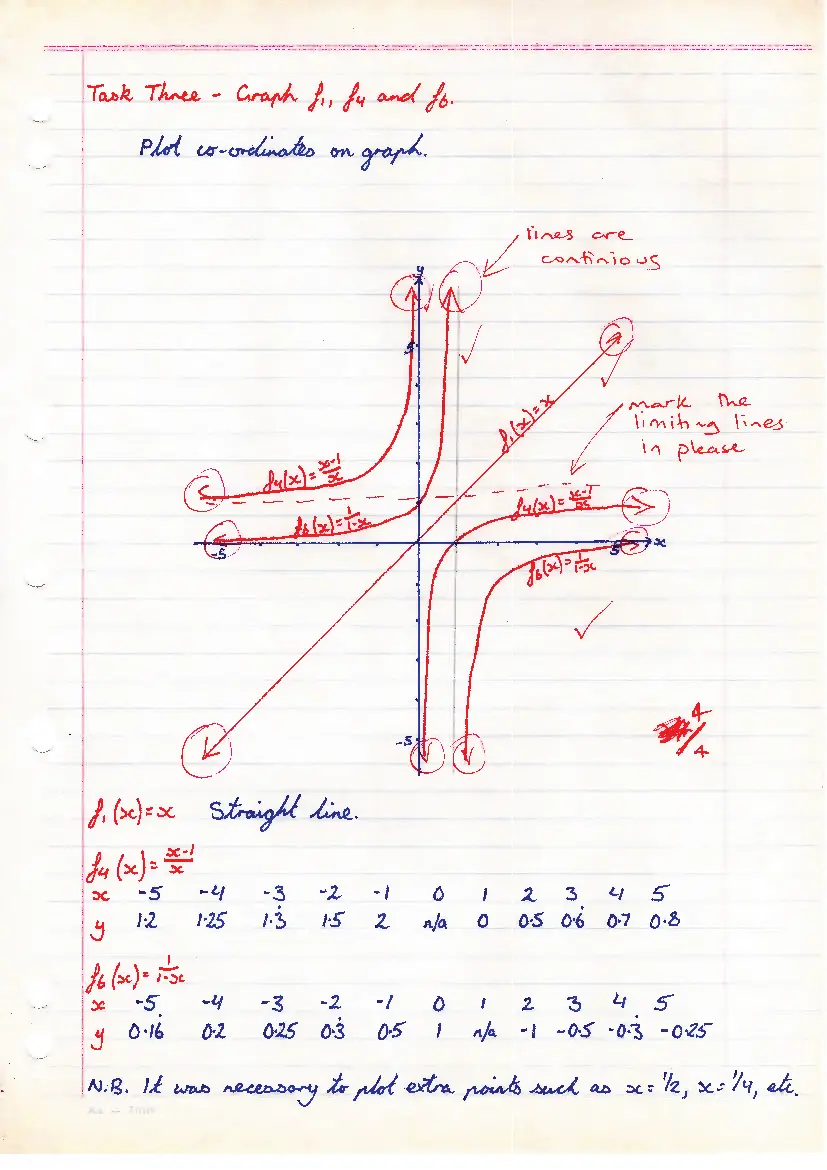 Task Three - Graph f₁, f₄ and f₆.
Plot co-ordinates on graph.
lines are
continious
y
5
f₁(x)=x
mark the
limiting lines
in please
f₄(x)=x-1/x
f₄(x)=x-1/x
f₆(x)=1/1-x
-5
5
x
f₆(x)=1/1-x
-5
4/4
f₁(x)=x Straight line.
f₄(x)=x-1/x
x -5 -4 -3 -2 -1 0 1 2 3 4 5
y 1.2 1.25 1.3̇ 1.5 2 n/a 0 0.5 0.6̇ 0.7 0.8
f₆(x)=1/1-x
x -5 -4 -3 -2 -1 0 1 2 3 4 5
y 0.16̇ 0.2 0.25 0.3̇ 0.5 1 n/a -1 -0.5 -0.3̇ -0.25
N.B. It was necessary to plot extra points such as x=1/2, x=1/4, etc.